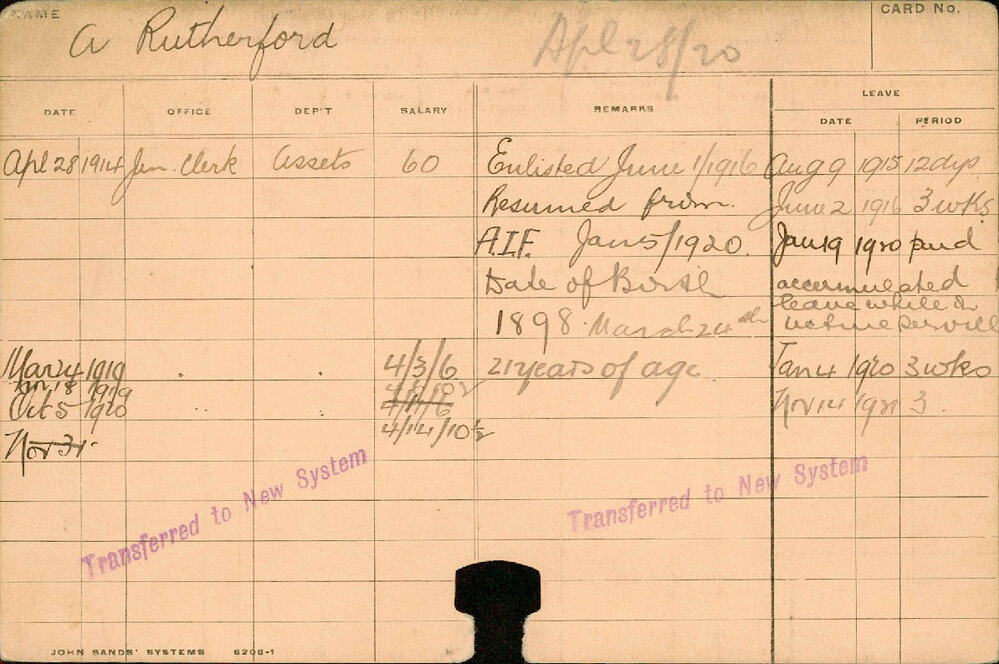 NAME
CARD No.
A Rutherford
Apl 28/20
DATE OFFICE DEP'T SALARY REMARKS LEAVE
DATE PERIOD
Apl 28 1914 Jun. Clerk Assets 60 Enlisted June 1/1916 Aug 9 1915 12 dys
Resumed from June 2 1916 3 wks
A.I.F. Jan 5/1920. Jan 19 1920 paid
Date of Birth accumulated
leave while on
1898 March 24th active service
Mar 24 1919 4/3/6 21 years of age Jan 4 1920 3 wks
18 1919
Oct 5 1920 4/11/6 Nov 14 1921 3
4/14/10½
Nov 31
Transferred to New System
Transferred to New System
JOHN SANDS' SYSTEMS 6206-1